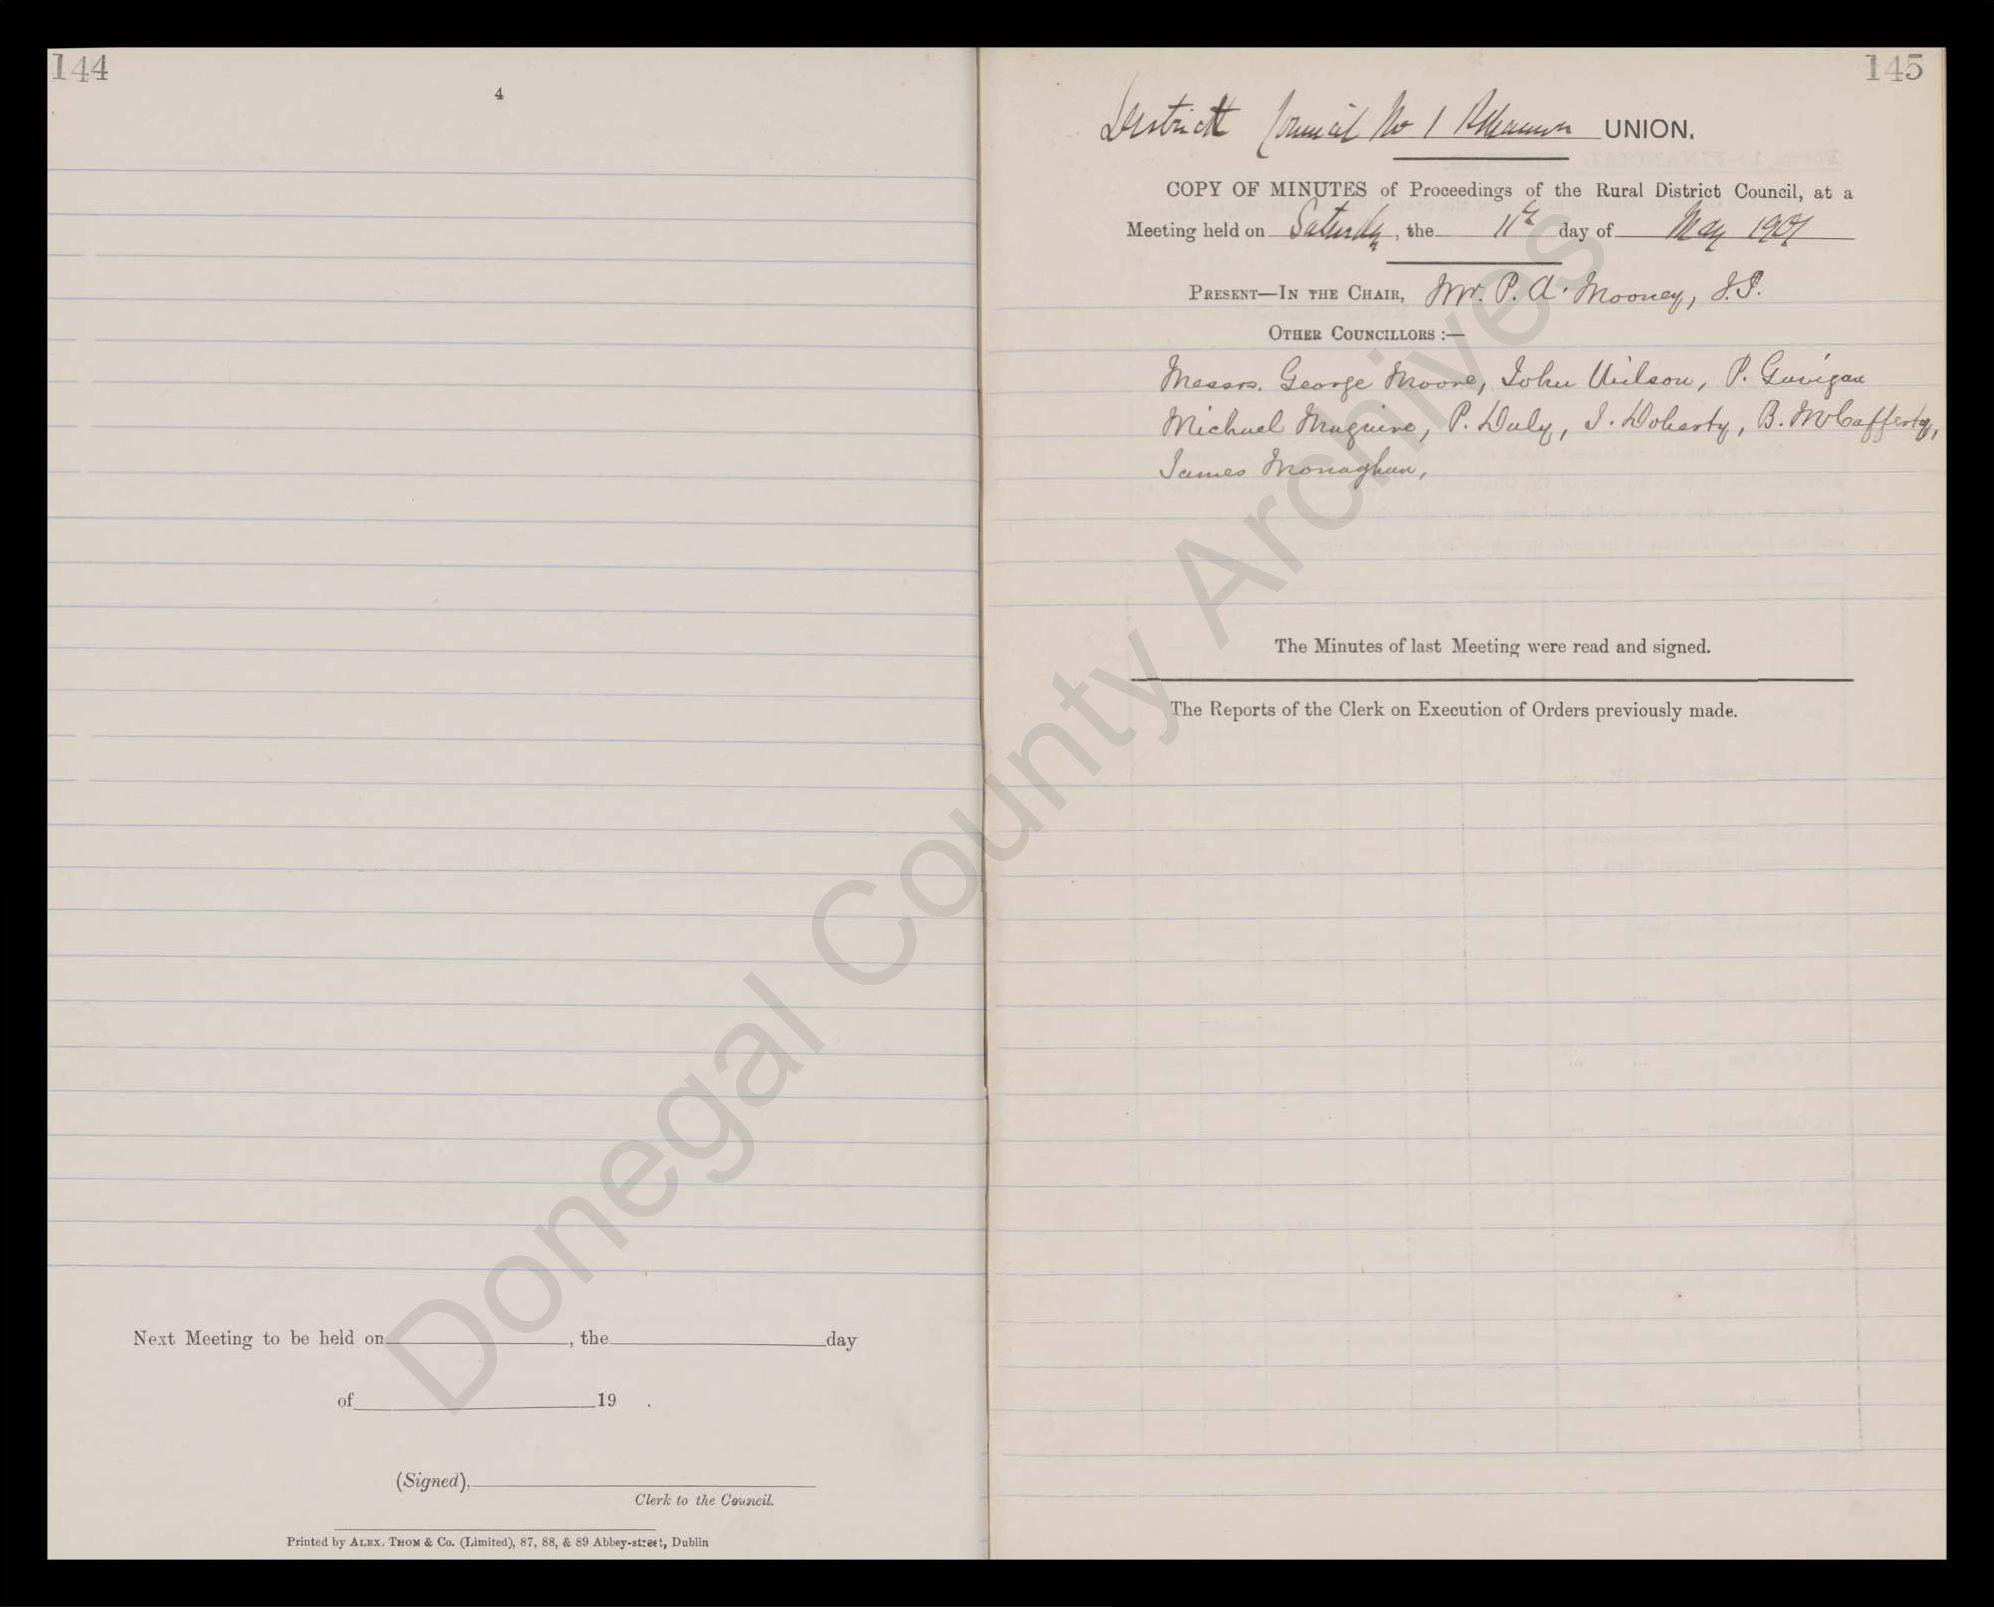 144
4
Next Meeting to be held on , the day
of 19 .
(Signed),
Clerk to the Council.
Printed by ALEX. THOM & Co. (Limited), 87, 88, & 89 Abbey-street, Dublin
145
District Council No 1 BShannon UNION.
COPY OF MINUTES of Proceedings of the Rural District Council, at a
Meeting held on Saturday, the 11th day of May
PRESENT—IN THE CHAIR, Mr. P. A. Mooney, J.P.
OTHER COUNCILLORS :—
Messrs. George Moore, John Wilson, P. Gavigan
Michael Maguire, P. Daly, J. Doherty, B. McCafferty,
James Monaghan,
The Minutes of last Meeting were read and signed.
The Reports of the Clerk on Execution of Orders previously made.
Donegal County Archives